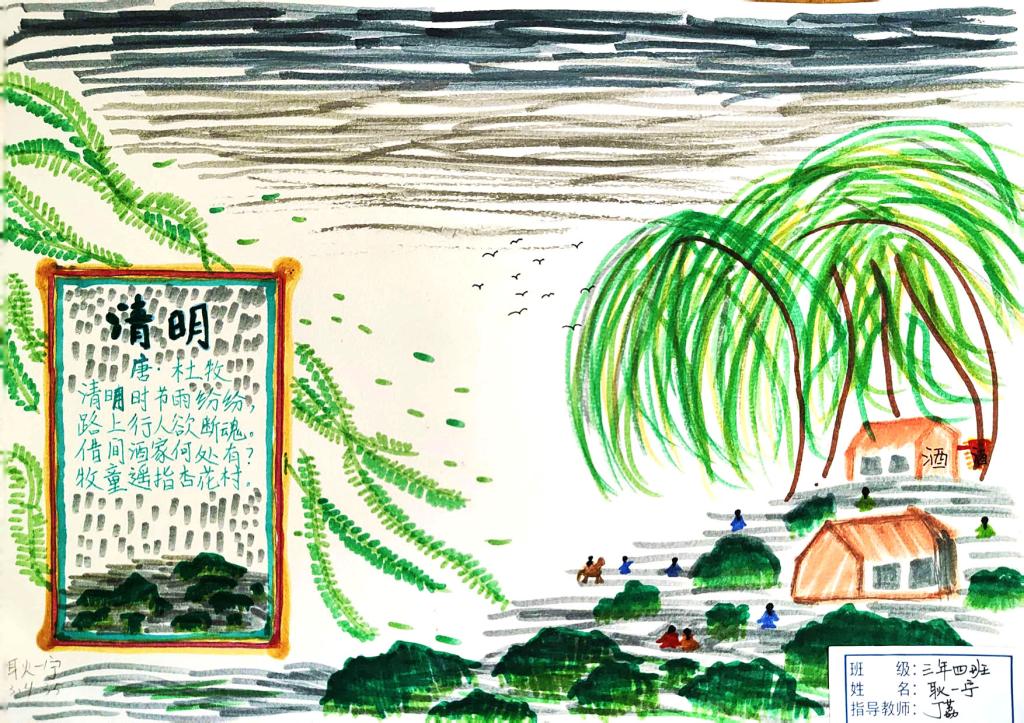 清明
唐·杜牧
清明时节雨纷纷，
路上行人欲断魂。
借问酒家何处有？
牧童遥指杏花村。
酒
酒
耿一宁
班 级：三年四班
姓 名：耿一宁
指导教师：丁荔